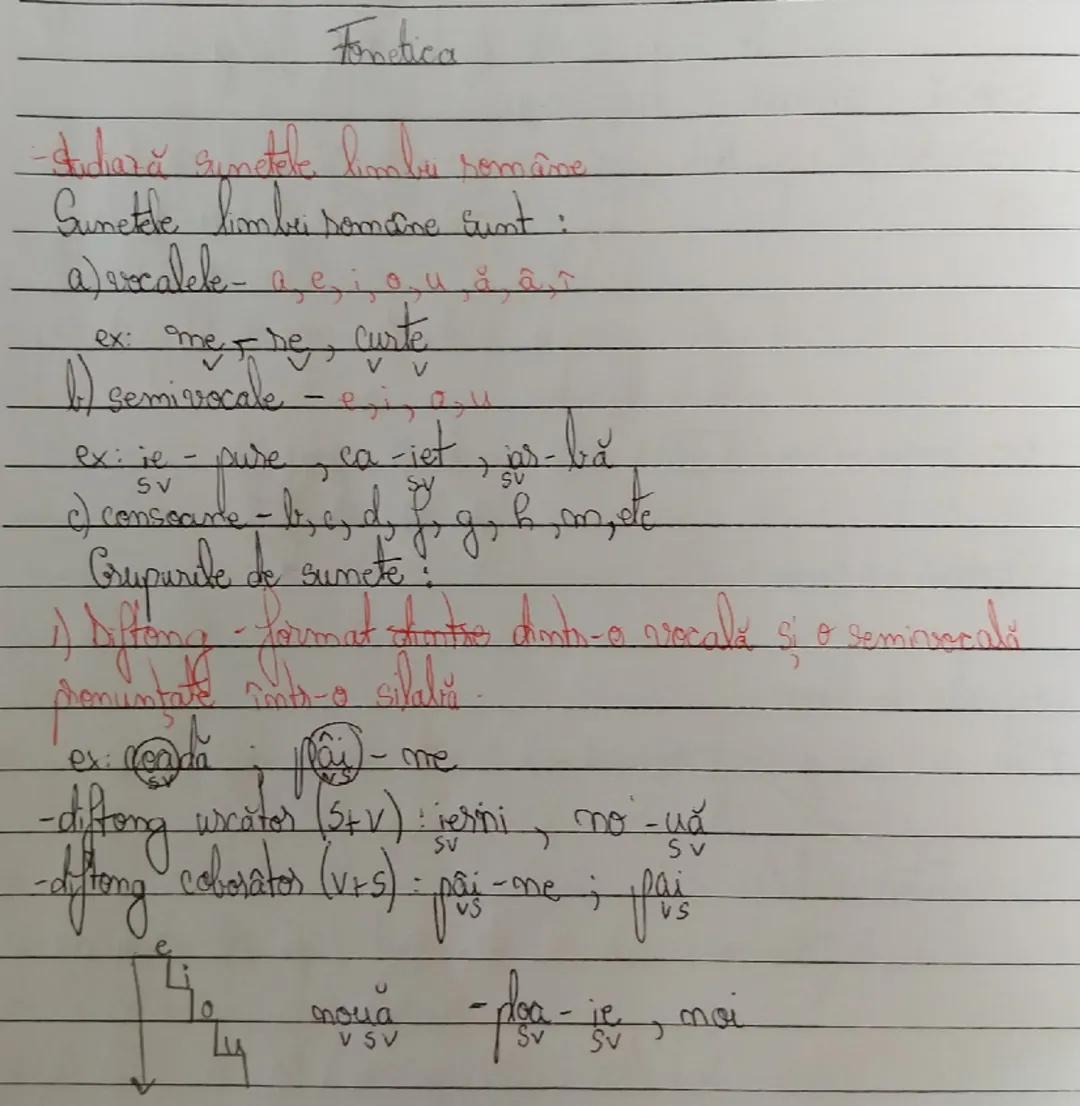 Fonetica
- Studiază sunetele limbii române
Sunetele limbii române sunt :
a) vocalele - a, e, i, o, u, ă, â, î
ex: me - re, curte
v v v v
b) semivocale - e, i, o, u
ex: ie - pure, ca - iet, iar - bă
sv sv sv
c) consoane - b, c, d, f, g, h, m, etc
Grupurile de sunete :
1) Diftong - format dintr-o vocală și o semivocală
pronunțate într-o silabă.
ex: coadă ; pâi - ne
sv vs
- diftong urcător (s+v) : ierni, no - uă
sv sv
- diftong coborâtor (v+s) : pâi - ne ; pai
vs vs
e
i
o
u
nouă - ploa - ie, noi
v s v sv sv